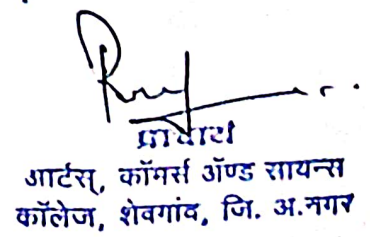 प्राचार्य
आर्टस्, कॉमर्स ॲण्ड सायन्स
कॉलेज, शेवगांव, जि. अ.नगर